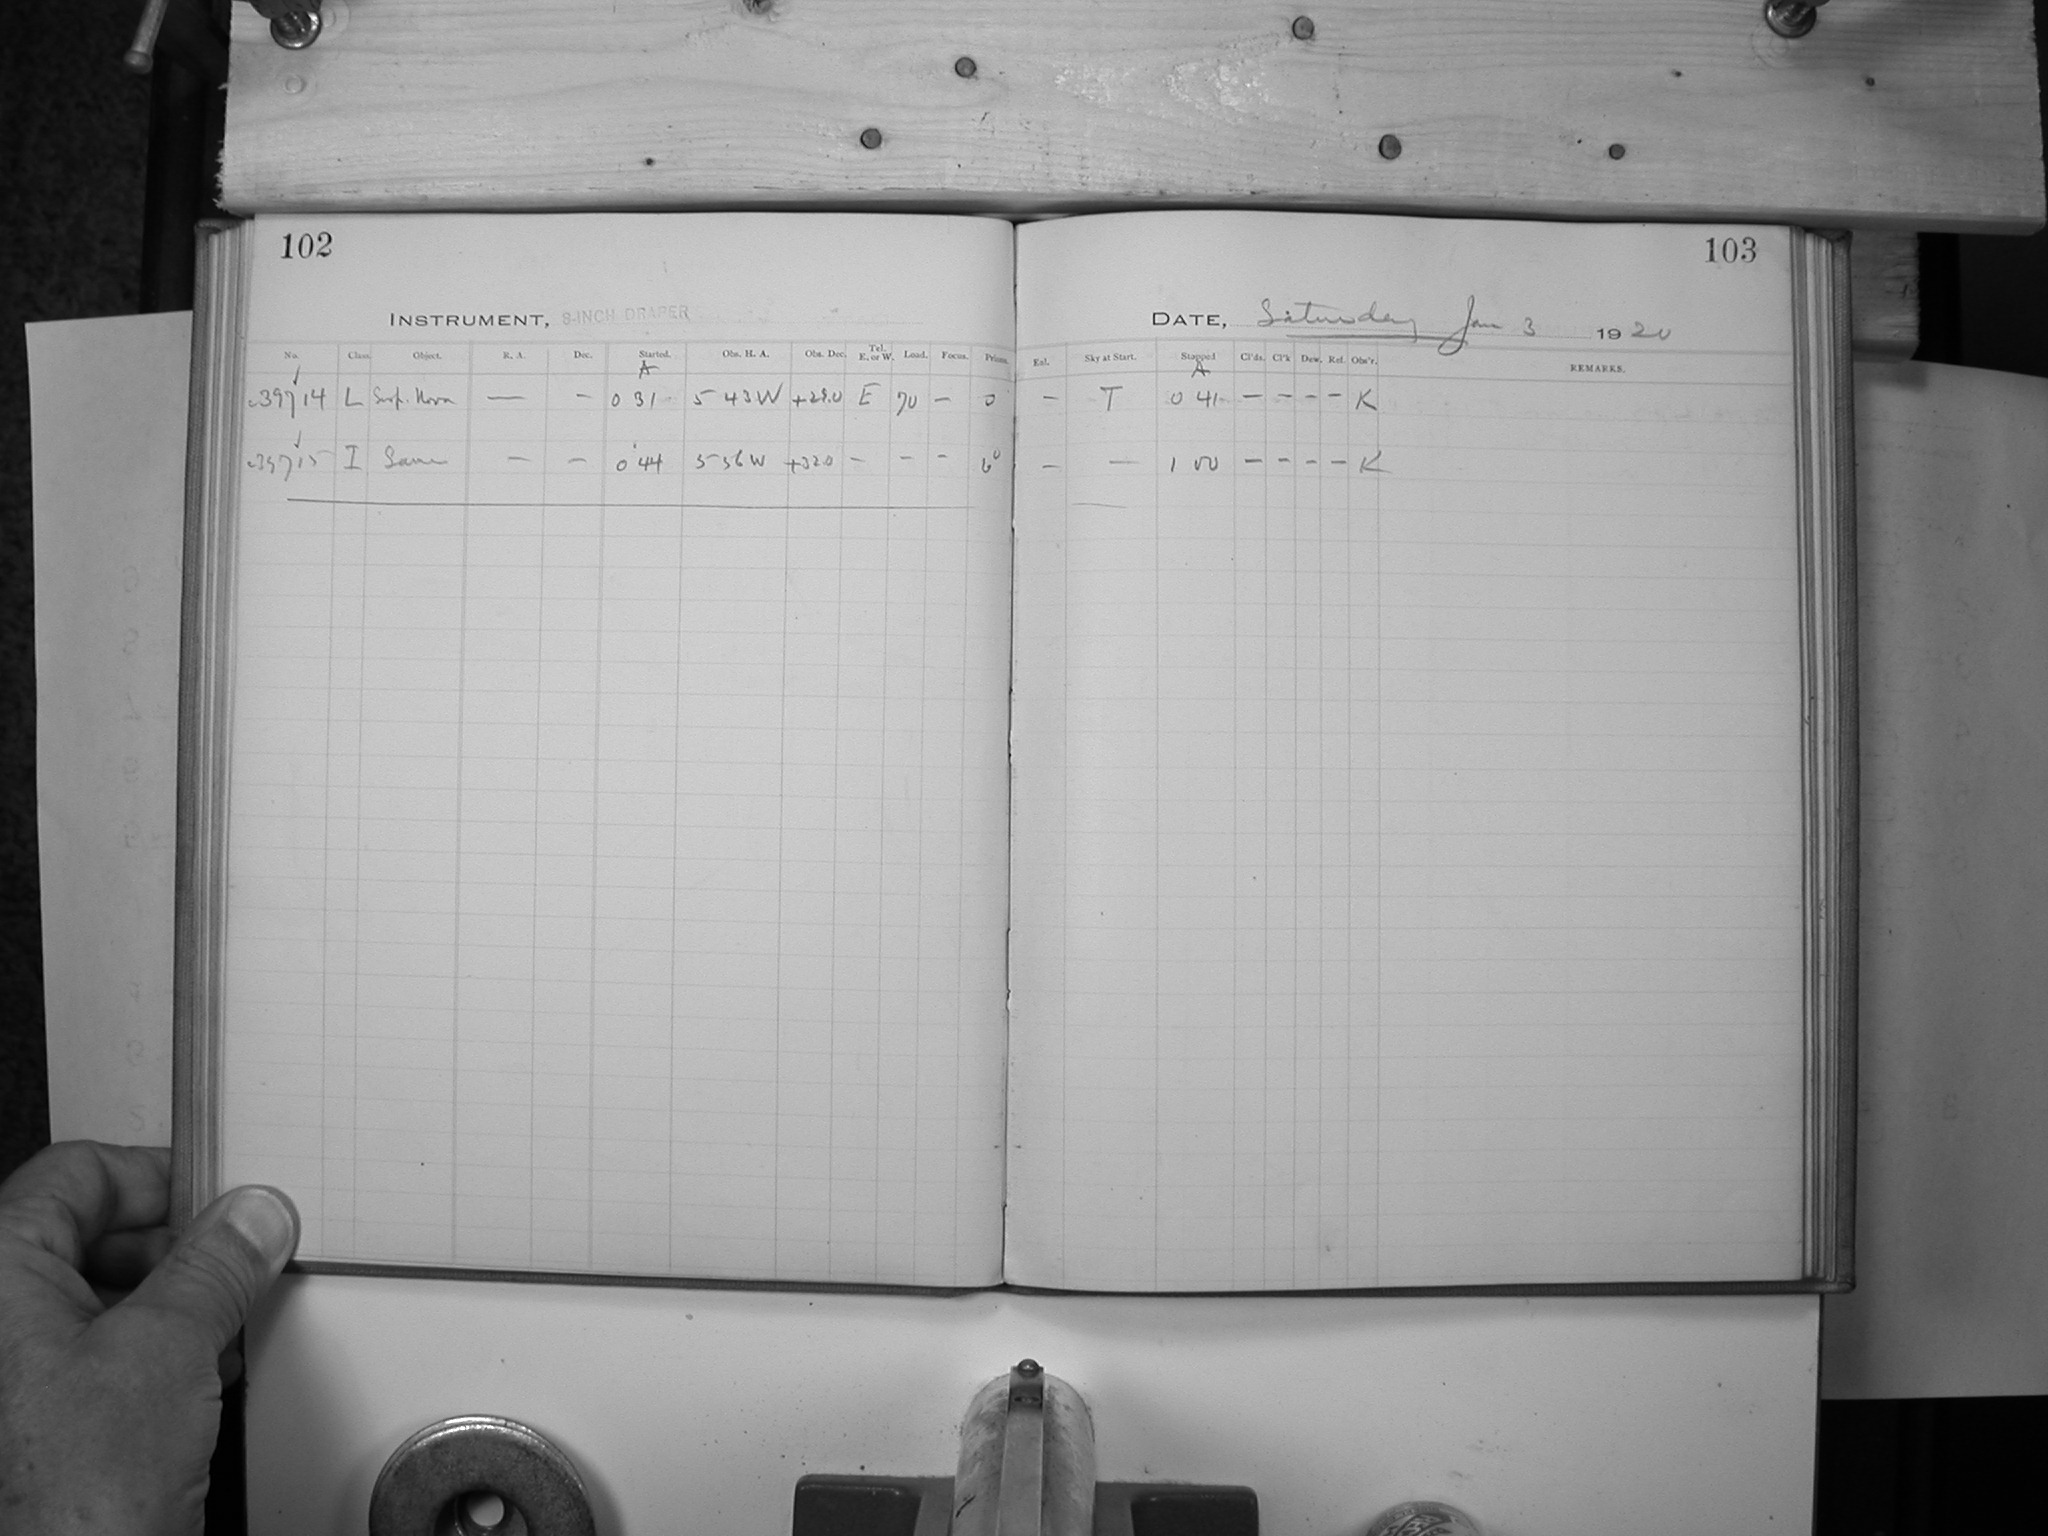 102
INSTRUMENT, 8-INCH DRAPER
No. Class. Object. R. A. Dec. Started. Obs. H. A. Obs. Dec. Tel. E. or W. Load. Focus. Prisms.
A
39714 L Susp. Nova — – 0 31 5 43 W +29.0 E 70 – 0
39715 I Same – – 0 44 5 56 W +32.0 – – –
103
DATE, Saturday Jan 3 1920
Exl. Sky at Start. Stopped Cl'ds. Cl'k Dew. Ref. Obs'r. REMARKS.
A
– T 0 41 – – – – K
– — 1 00 – – – – K